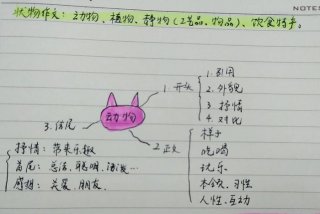 NOTES
状物作文：动物、植物、静物（工艺品、物品）、饮食特产。
1. 开头
1. 引用
2. 外貌
3. 抒情
4. 对比
动物
2. 正文
样子
吃喝
玩乐
本领、习性
人性、互动
3. 结尾
抒情：带来乐趣
首尾：总活、聪明、活泼…
感想：关爱、朋友